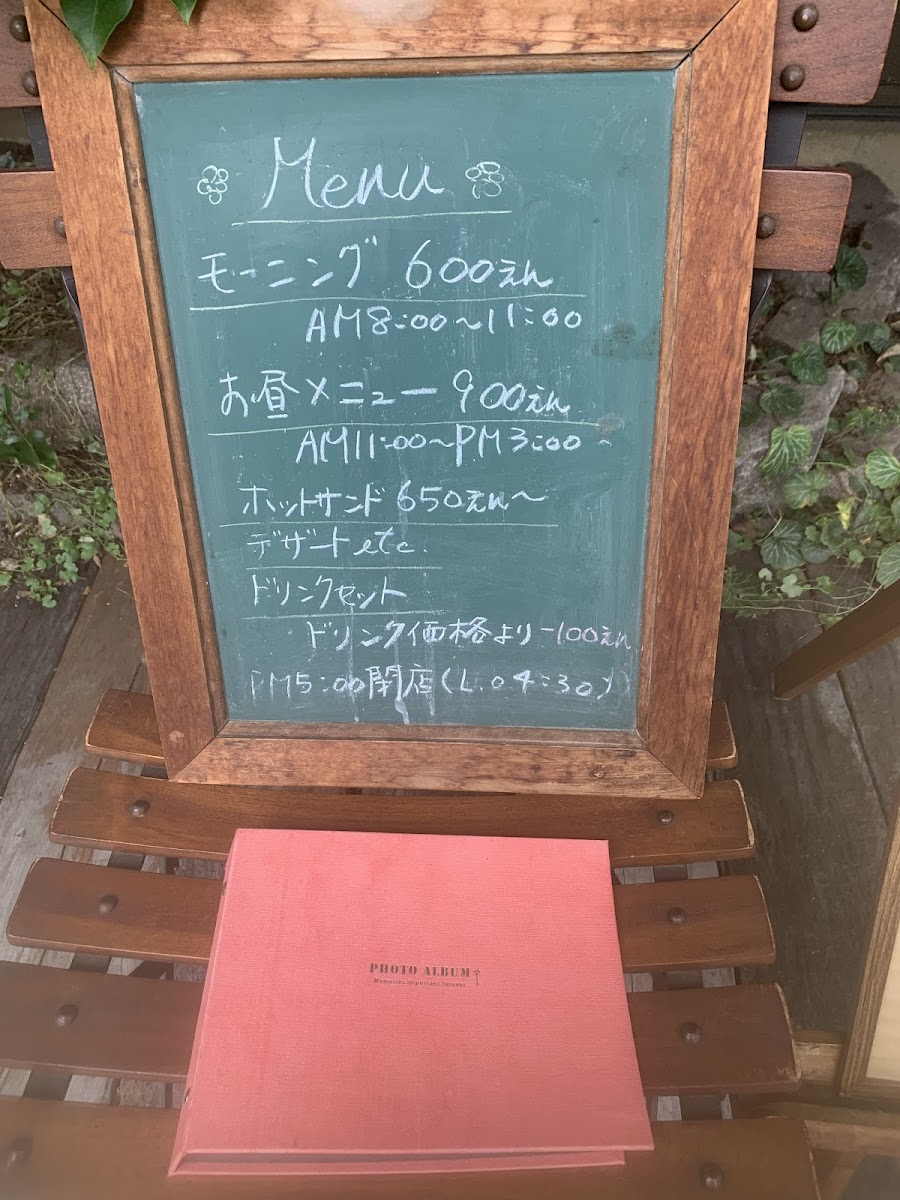 Menu
モーニング 600えん
AM8:00~11:00
お昼メニュー 900えん
AM11:00~PM3:00
ホットサンド 650えん~
デザートetc.
ドリンクセット
ドリンク価格より-100えん
PM5:00閉店(L.O4:30)
PHOTO ALBUM